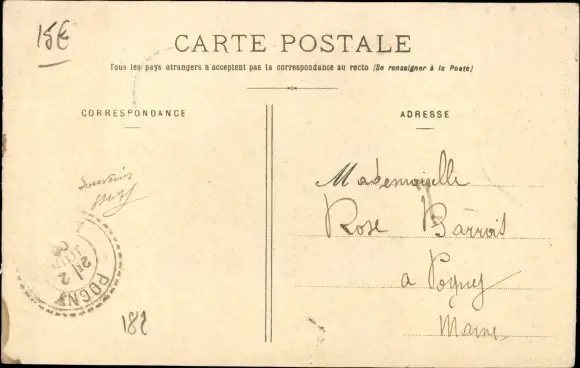 15€
CARTE POSTALE
Tous les pays étrangers n'acceptent pas la correspondance au recto (Se renseigner à la Poste)
CORRESPONDANCE
ADRESSE
Souvenir
Mademoiselle
Rose Barrois
à Pogny
Marne
POGNY
182